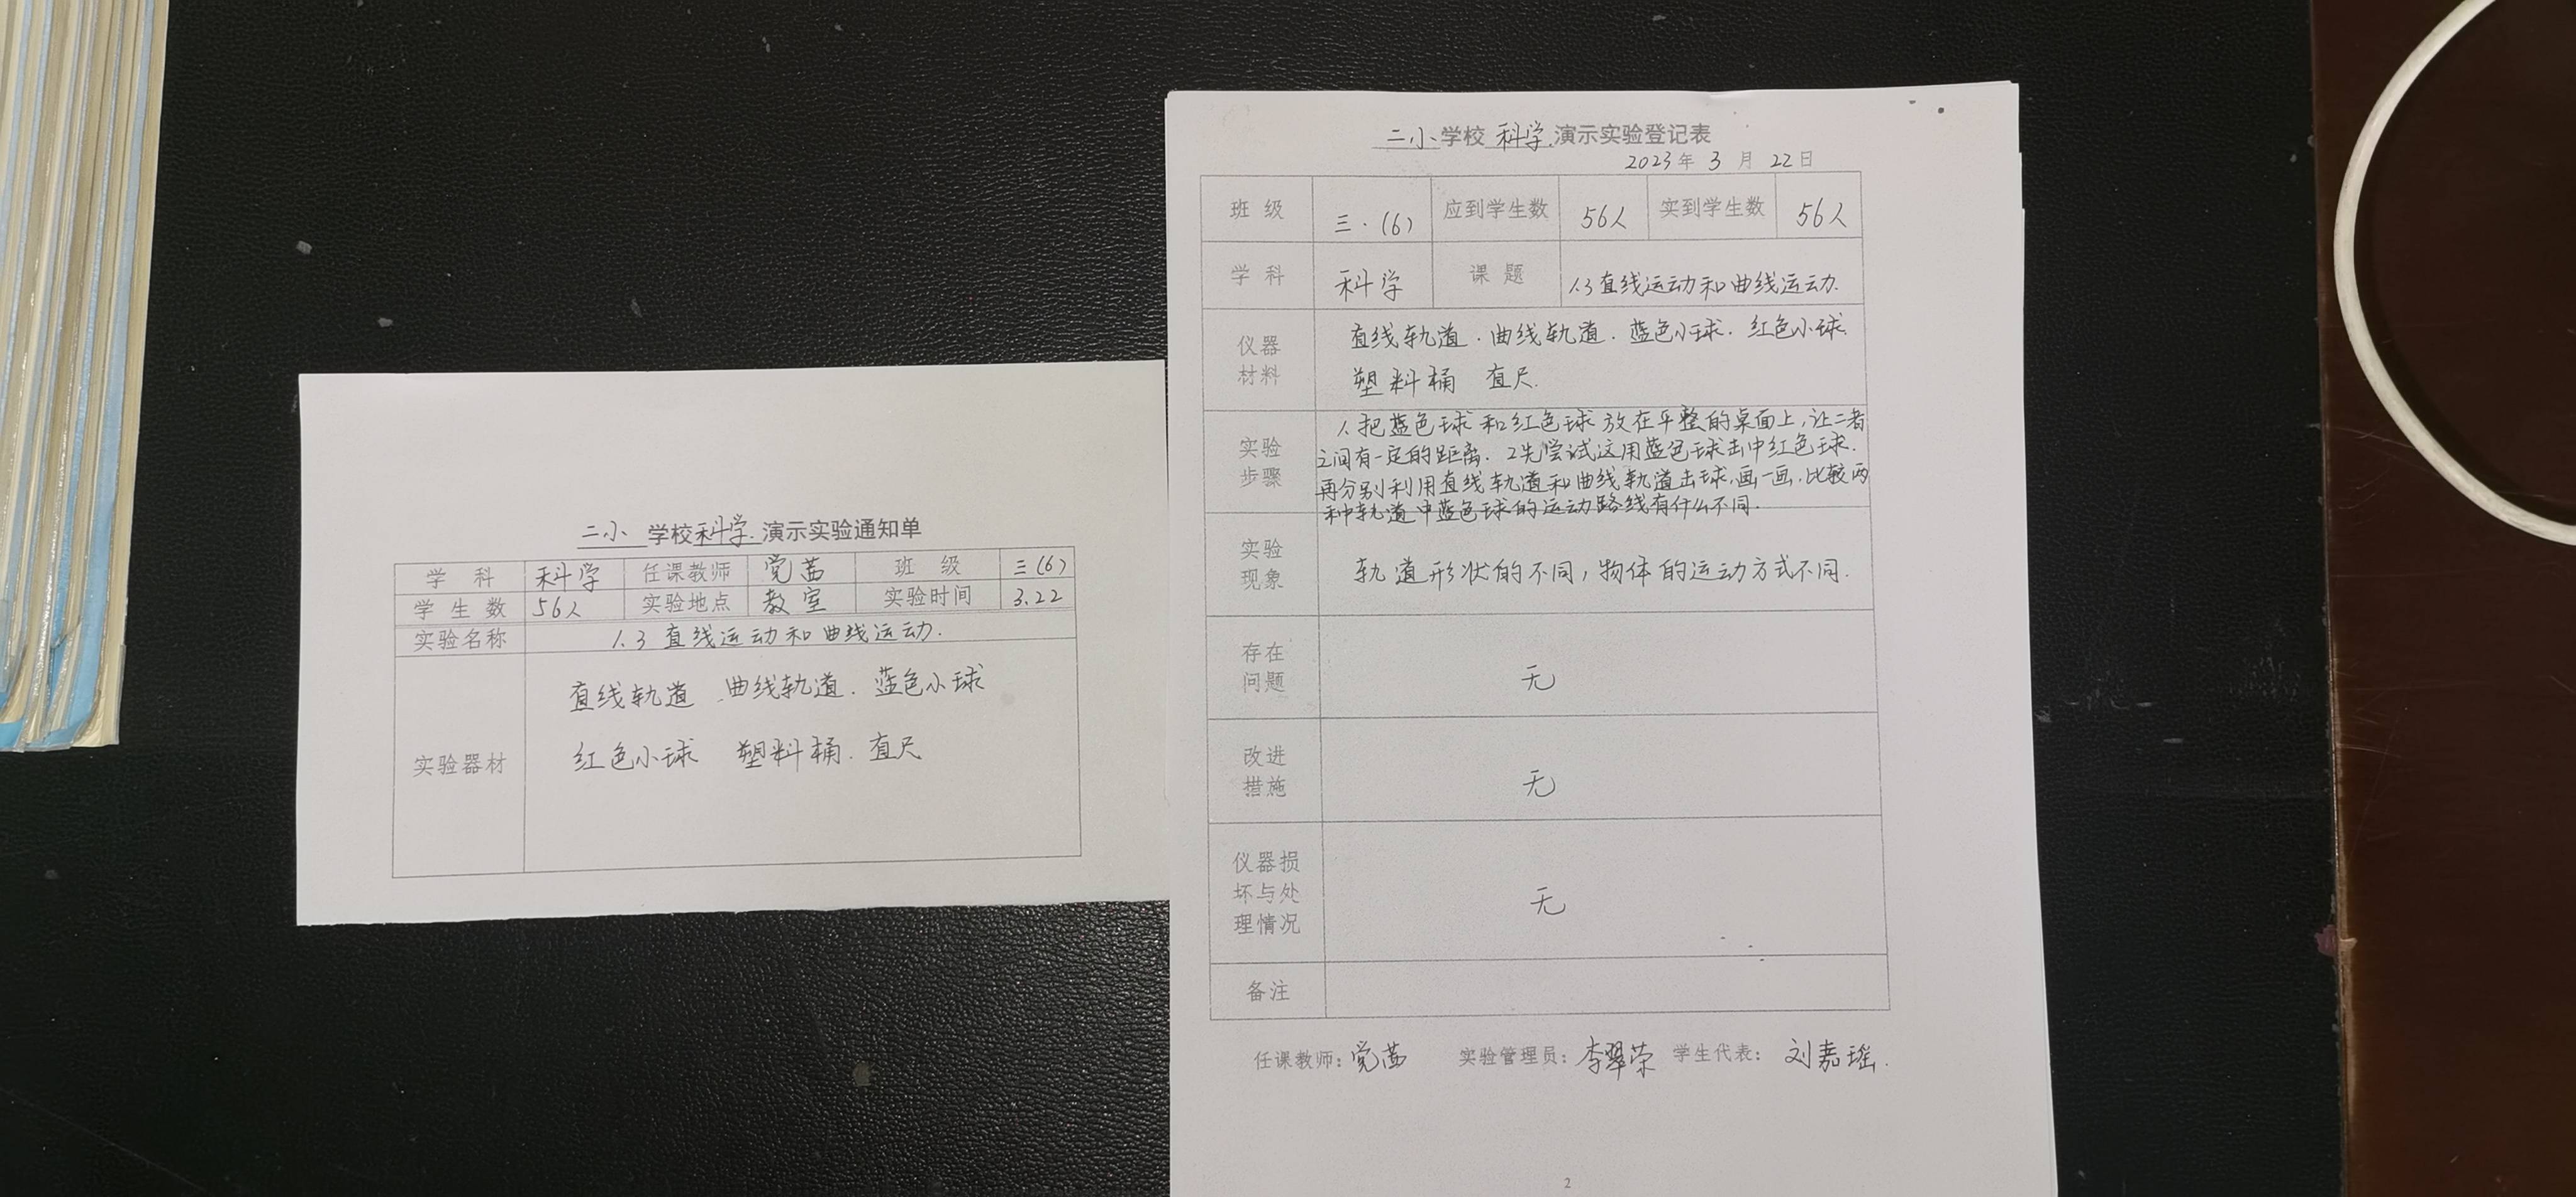 二小 学校科学 演示实验通知单
学 科 科学 任课教师 党茜 班 级 三(6)
学 生 数 56人 实验地点 教室 实验时间 3.22
实验名称 1.3 直线运动和曲线运动.
直线轨道 曲线轨道. 蓝色小球
实验器材
红色小球 塑料桶. 直尺
二小学校 科学 演示实验登记表
2023年 3 月 22日
班 级 三.(6) 应到学生数 56人 实到学生数 56人
学 科 科学 课 题 1.3直线运动和曲线运动.
仪器
材料
直线轨道.曲线轨道.蓝色小球.红色小球.
塑料桶 直尺.
实验
步骤
1.把蓝色球和红色球放在平整的桌面上,让二者
之间有一定的距离. 2先尝试这用蓝色球击中红色球.
再分别利用直线轨道和曲线轨道击球,画一画,比较两
种轨道中蓝色球的运动路线有什么不同.
实验
现象
轨道形状的不同,物体的运动方式不同.
存在
问题
无
改进
措施
无
仪器损
坏与处
理情况
无
备注
任课教师:党茜 实验管理员:李翠荣 学生代表: 刘嘉瑶.
2